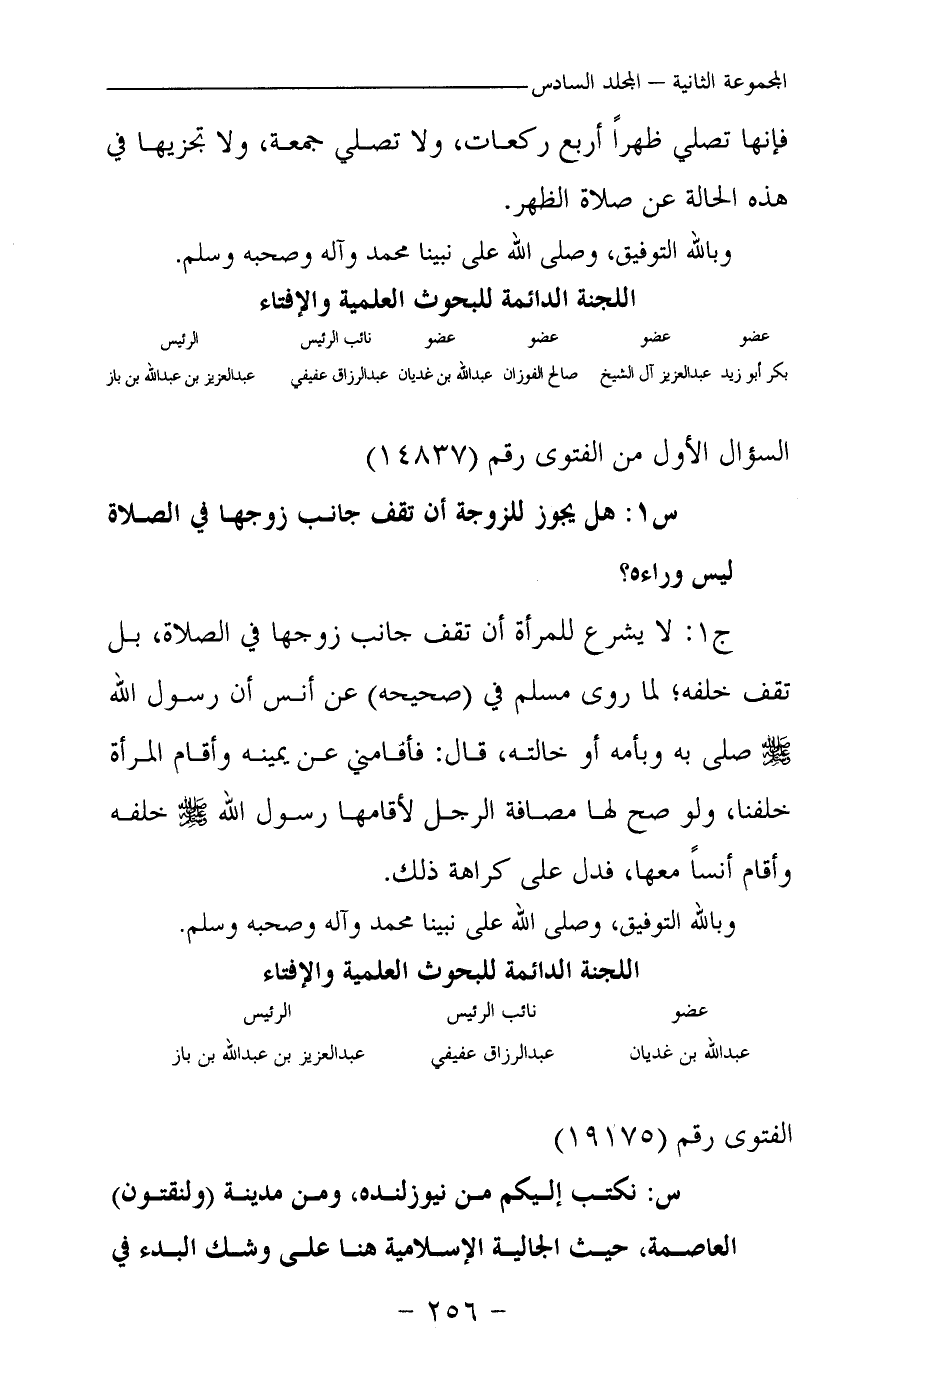 المجموعة الثانية – المجلد السادس
فإنها تصلي ظهراً أربع ركعات، ولا تصلي جمعة، ولا تجزيها في
هذه الحالة عن صلاة الظهر.
وبالله التوفيق، وصلى الله على نبينا محمد وآله وصحبه وسلم.
اللجنة الدائمة للبحوث العلمية والإفتاء
عضو عضو عضو عضو نائب الرئيس الرئيس
بكر أبو زيد عبدالعزيز آل الشيخ صالح الفوزان عبدالله بن غديان عبدالرزاق عفيفي عبدالعزيز بن عبدالله بن باز
السؤال الأول من الفتوى رقم (١٤٨٣٧)
س١: هل يجوز للزوجة أن تقف جانب زوجها في الصلاة
ليس وراءه؟
ج١: لا يشرع للمرأة أن تقف جانب زوجها في الصلاة، بل
تقف خلفه؛ لما روى مسلم في (صحيحه) عن أنس أن رسول الله
ﷺ صلى به وبأمه أو خالته، قال: فأقامني عن يمينه وأقام المرأة
خلفنا، ولو صح لها مصافة الرجل لأقامها رسول الله ﷺ خلفه
وأقام أنساً معها، فدل على كراهة ذلك.
وبالله التوفيق، وصلى الله على نبينا محمد وآله وصحبه وسلم.
اللجنة الدائمة للبحوث العلمية والإفتاء
عضو نائب الرئيس الرئيس
عبدالله بن غديان عبدالرزاق عفيفي عبدالعزيز بن عبدالله بن باز
الفتوى رقم (١٩١٧٥)
س: نكتب إليكم من نيوزلنده، ومن مدينة (ولنقتون)
العاصمة، حيث الجالية الإسلامية هنا على وشك البدء في
– ٢٥٦ –